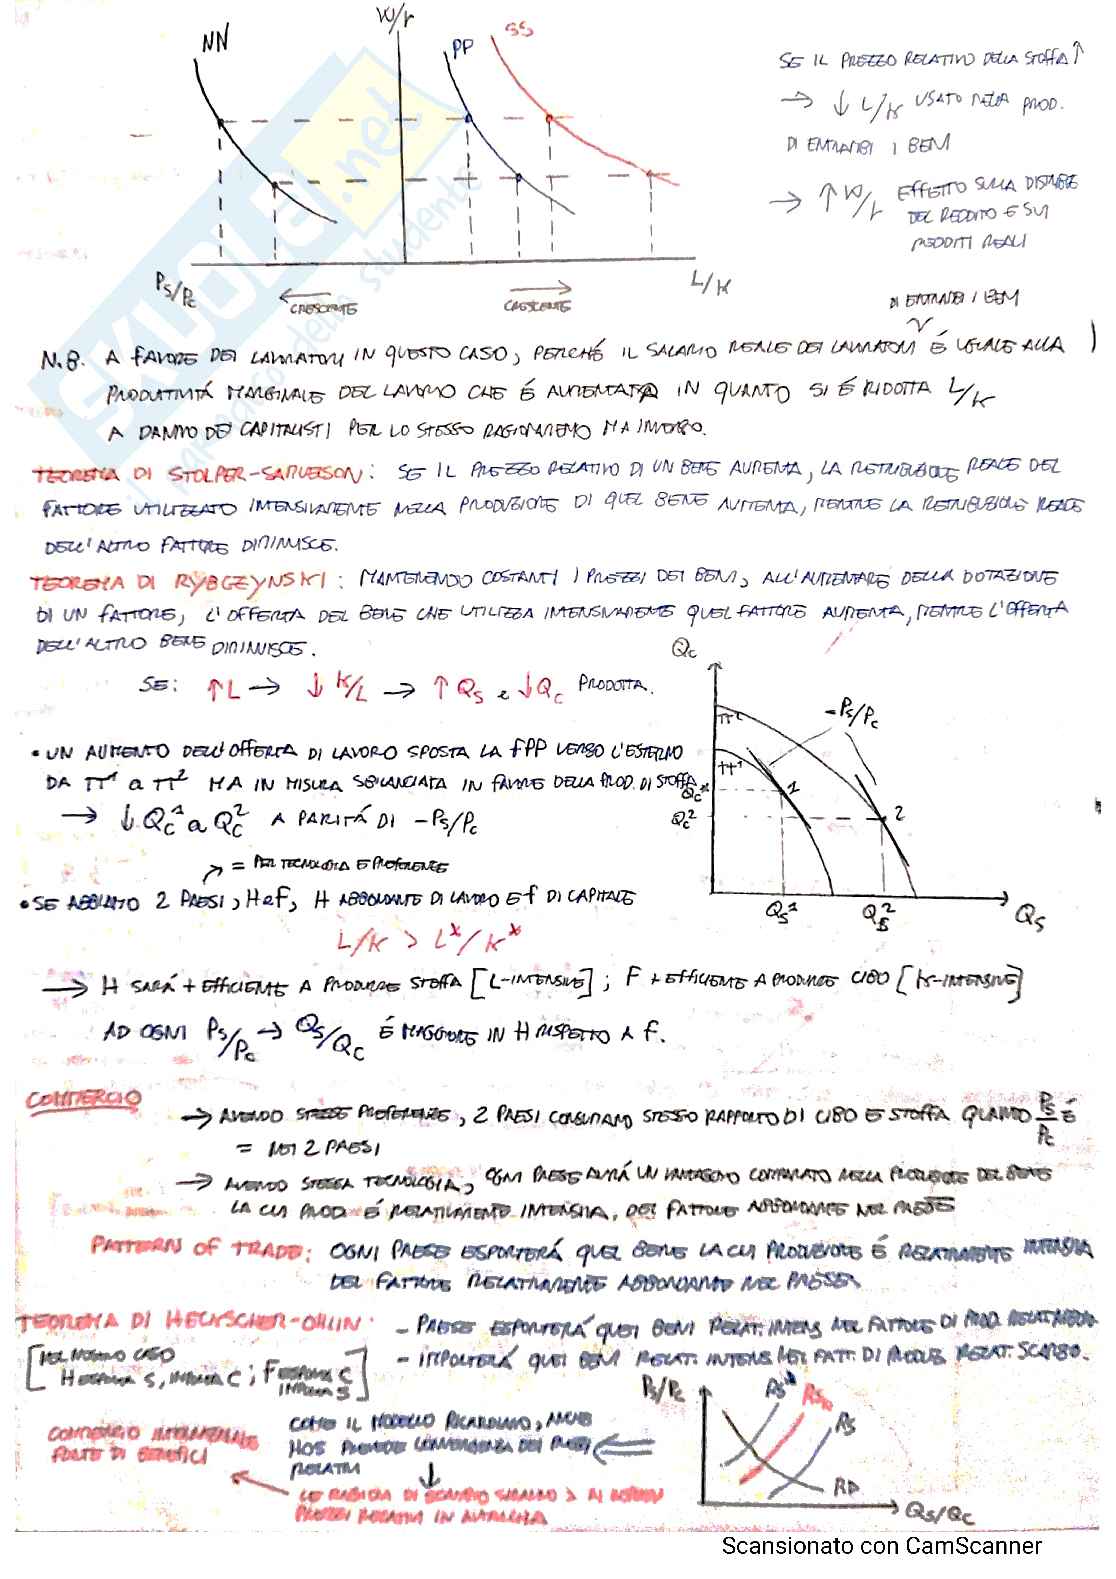 W/r
NN
PP
SS
SE IL PREZZO RELATIVO DELLA STOFFA ↑
→ ↓ L/K USATO NELLA PROD.
DI ENTRAMBI I BENI
→ ↑ W/r EFFETTO SULLA DISTRIB.
DEL REDDITO E SUI
REDDITI REALI
PS/PC
CRESCENTE
CRESCENTE
L/K
DI ENTRAMBI I BENI
N.B. A FAVORE DEI LAVORATORI IN QUESTO CASO, PERCHÉ IL SALARIO REALE DEI LAVORATORI É UGUALE ALLA
PRODUTTIVITÁ MARGINALE DEL LAVORO CHE É AUMENTATA IN QUANTO SI É RIDOTTA L/K
A DANNO DEI CAPITALISTI PER LO STESSO RAGIONAMENTO MA INVERSO.
TEOREMA DI STOLPER-SAMUELSON: SE IL PREZZO RELATIVO DI UN BENE AUMENTA, LA RETRIBUZIONE REALE DEL
FATTORE UTILIZZATO INTENSIVAMENTE NELLA PRODUZIONE DI QUEL BENE AUMENTA, MENTRE LA RETRIBUZIONE REALE
DELL'ALTRO FATTORE DIMINUISCE.
TEOREMA DI RYBCZYNSKI: MANTENENDO COSTANTI I PREZZI DEI BENI, ALL'AUMENTARE DELLA DOTAZIONE
DI UN FATTORE, L'OFFERTA DEL BENE CHE UTILIZZA INTENSIVAMENTE QUEL FATTORE AUMENTA, MENTRE L'OFFERTA
DELL'ALTRO BENE DIMINUISCE.
SE: ↑L → ↓ K/L → ↑ QS e ↓QC PRODOTTA.
QC
TT²
TT¹
-PS/PC
1
2
QC¹
QC²
QS¹
QS²
QS
• UN AUMENTO DELL'OFFERTA DI LAVORO SPOSTA LA FPP VERSO L'ESTERNO
DA TT¹ a TT² MA IN MISURA SBILANCIATA IN FAVORE DELLA PROD. DI STOFFA
→ ↓ QC¹ a QC² A PARITÁ DI -PS/PC
= PER TECNOLOGIA E PREFERENZE
• SE ABBIAMO 2 PAESI, H e F, H ABBONDANTE DI LAVORO E F DI CAPITALE
L/K > L*/K*
→ H SARÁ + EFFICIENTE A PRODURRE STOFFA [L-INTENSIVE]; F + EFFICIENTE A PRODURRE CIBO [K-INTENSIVE]
AD OGNI PS/PC → QS/QC É MAGGIORE IN H RISPETTO A F.
COMMERCIO
→ AVENDO STESSE PREFERENZE, 2 PAESI CONSUMANO STESSO RAPPORTO DI CIBO E STOFFA QUANDO PS/PC É
= NEI 2 PAESI
→ AVENDO STESSA TECNOLOGIA, OGNI PAESE AVRÁ UN VANTAGGIO COMPARATO NELLA PRODUZIONE DEL BENE
LA CUI PROD. É RELATIVAMENTE INTENSIVA, DEL FATTORE ABBONDANTE NEL PAESE
PATTERN OF TRADE: OGNI PAESE ESPORTERÁ QUEL BENE LA CUI PRODUZIONE É RELATIVAMENTE INTENSIVA
DEL FATTORE RELATIVAMENTE ABBONDANTE NEL PAESE
TEOREMA DI HECKSCHER-OHLIN: - PAESE ESPORTERÁ QUEI BENI RELAT. INTENS. NEL FATTORE DI PROD. RELAT.
- IMPORTERÁ QUEI BENI RELAT. INTENS. NEI FATT. DI PRODUZ. RELAT. SCARSO.
[NEL NOSTRO CASO
H ESPORTA S, IMPORTA C; F ESPORTA C IMPORTA S]
PS/PC
RS*
RS
RS
RD
QS/QC
COME IL MODELLO RICARDIANO, ANCHE
HOS PREVEDE CONVERGENZA DEI PREZZI
RELATIVI
COMMERCIO INTERNAZIONALE
FONTE DI BENEFICI
LE RAGIONI DI SCAMBIO SARANNO > AI
PREZZI RELATIVI IN AUTARCHIA
SKUOLA.net
il paradiso dello studente
Scansionato con CamScanner